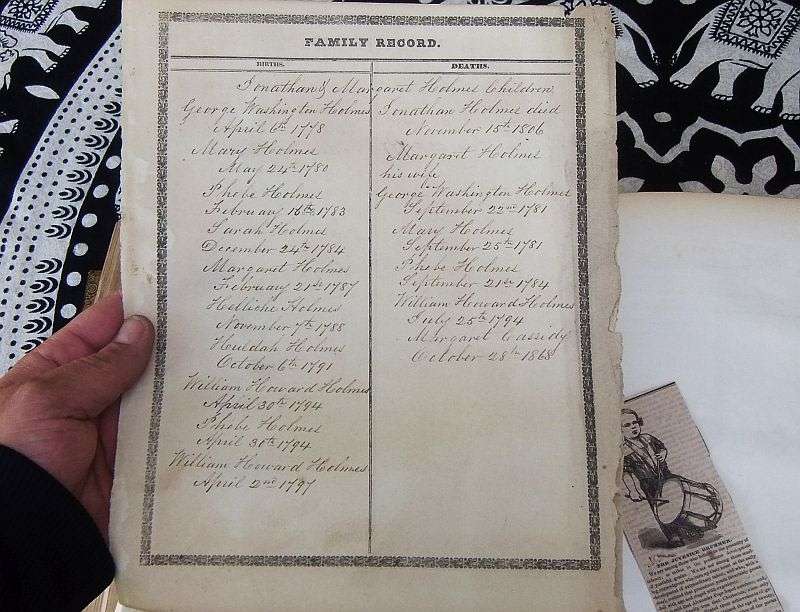 FAMILY RECORD.
BIRTHS.
DEATHS.
Jonathan & Margaret Holmes Children
George Washington Holmes
April 6th 1778
Mary Holmes
May 24th 1780
Phebe Holmes
February 16th 1783
Sarah Holmes
December 24th 1784
Margaret Holmes
February 21st 1787
Holmes
November 7th 1788
Huldah Holmes
October 6th 1791
William Howard Holmes
April 30th 1794
Phebe Holmes
April 30th 1794
William Howard Holmes
April 2nd 1797
Jonathan Holmes died
November 15th 1806
Margaret Holmes
his wife
George Washington Holmes
September 22nd 1781
Mary Holmes
September 25th 1781
Phebe Holmes
September 21st 1784
William Howard Holmes
July 25th 1794
Margaret Cassidy
October 28th 1868